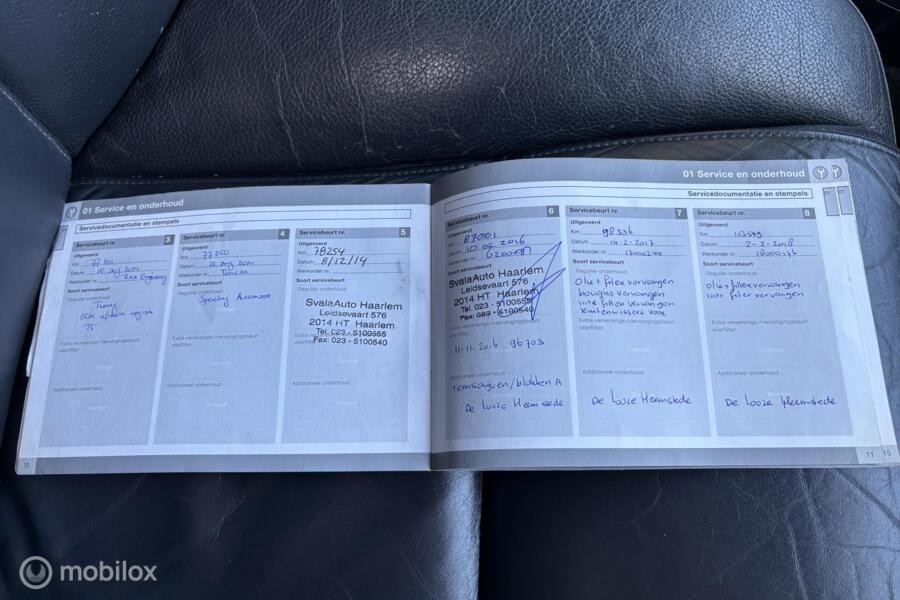 01 Service en onderhoud
Servicedocumentatie en stempels
Servicebeurt nr. 3
Uitgevoerd
Km 77100
Datum
Werkorder nr.
Soort servicebeurt
Regulier onderhoud
Timing
Extra verversings-/vervangingsbeurt
olie/filter:
Additioneel onderhoud
Servicebeurt nr. 4
Uitgevoerd
Km 77250
Datum
Werkorder nr.
Soort servicebeurt
Regulier onderhoud
Speeding Automode
Extra verversings-/vervangingsbeurt
olie/filter:
Additioneel onderhoud
Servicebeurt nr. 5
Uitgevoerd
Km 78254
Datum 8/12/14
Werkorder nr.
Soort servicebeurt
SvalaAuto Haarlem
Leidsevaart 576
2014 HT Haarlem
Tel. 023 - 5100555
Fax: 023 - 5100540
Additioneel onderhoud
10
01 Service en onderhoud
Servicedocumentatie en stempels
Servicebeurt nr. 6
Uitgevoerd
Km 87001
Datum 10 07 2016
Werkorder nr.
Soort servicebeurt
SvalaAuto Haarlem
Leidsevaart 576
2014 HT Haarlem
Tel. 023 - 5100555
Fax: 023 - 5100540
Extra verversings-/vervangingsbeurt
11-11-2016 96703
Additioneel onderhoud
remschijven/blokken A
De Looze Heemstede
Servicebeurt nr. 7
Uitgevoerd
Km 98336
Datum 14-2-2017
Werkorder nr. 17000244
Soort servicebeurt
Regulier onderhoud
Olie + filter vervangen
bougies vervangen
inte filter vervangen
ruitenwissers voor
Extra verversings-/vervangingsbeurt
olie/filter:
Additioneel onderhoud
De Looze Heemstede
Servicebeurt nr. 8
Uitgevoerd
Km 103599
Datum 2-2-2018
Werkorder nr.
Soort servicebeurt
Regulier onderhoud
Olie + filter vervangen
inte filter vervangen
Extra verversings-/vervangingsbeurt
olie/filter:
Additioneel onderhoud
De Looze Heemstede
11
15
mobilox